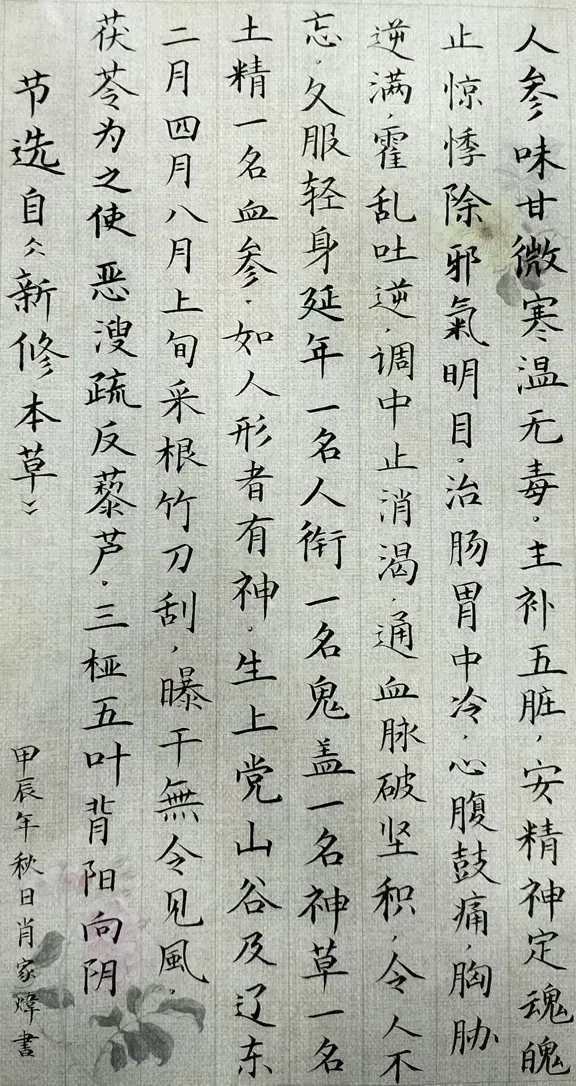 人参味甘微寒温无毒。主补五脏，安精神定魂魄
止惊悸除邪氣明目。治肠胃中冷，心腹鼓痛，胸胁
逆满，霍乱吐逆，调中止消渴，通血脉破坚积，令人不
忘。久服轻身延年一名人衔一名鬼盖一名神草一名
土精一名血参。如人形者有神。生上党山谷及辽东
二月四月八月上旬采根竹刀刮，曝干無令见風。
茯苓为之使恶溲疏反藜芦。三桠五叶背阳向阴
节选自《新修本草》
甲辰年秋日肖家煒書